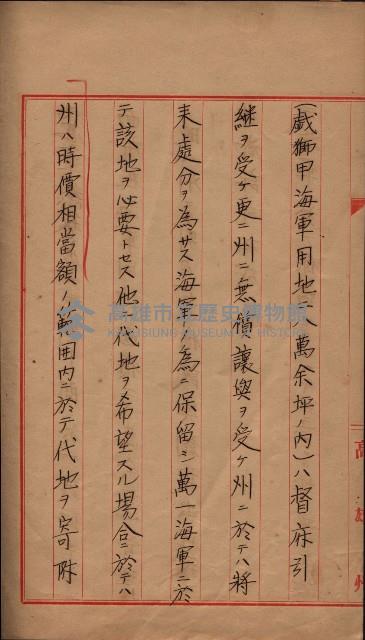 (戯獅甲海軍用地八萬余坪ノ内)ハ督府引
継ヲ受ケ更ニ州ニ無償讓與ヲ受ケ州ニ於テハ將
来處分ヲ為サス海軍ノ為ニ保留シ萬一海軍ニ於
テ該地ヲ必要トセス他ニ代地ヲ希望スル場合ニ於テハ
州ハ時價相當額ノ範囲内ニ於テ代地ヲ寄附
高雄州
高雄市立歷史博物館
KAOHSIUNG MUSEUM OF HISTORY